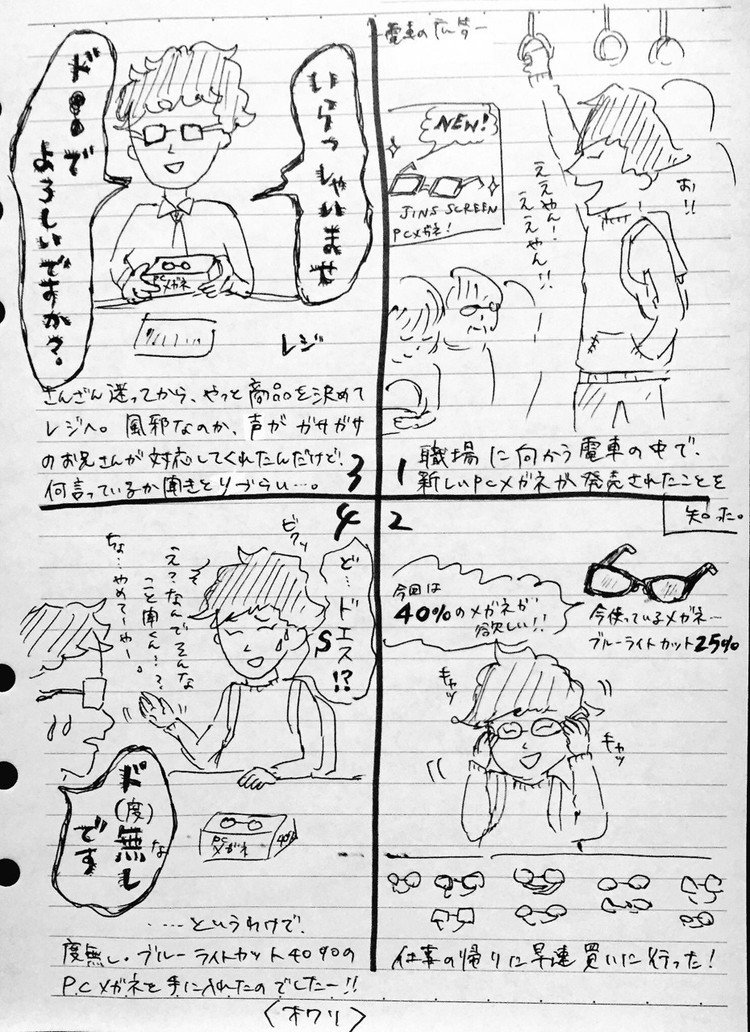 電車の広告
NEW!
JINS SCREEN
PCメガネ!
お!!
ええやん!
ええやん!!
1
職場に向かう電車の中で、
新しいPCメガネが発売されたことを
知った。
2
今回は
40%のメガネが
欲しい!!
今使っているメガネ…
ブルーライトカット25%
キャッ
キャッ
仕事の帰りに早速買いに行った!
いらっしゃいませ
ド●●で
よろしいですか?
PCメガネ
レジ
さんざん迷ってから、やっと商品を決めて
レジへ。風邪なのか、声がガサガサ
のお兄さんが対応してくれたんだけど、
何言っているか聞きとりづらい…。
3
4
ビクッ
ど…ドエス!?
S
え?なんでそんな
こと聞くん…?
ちょ…やめてーやー。
ド(度)無し
な
です
PC
メガネ
40%
……というわけで、
度無し・ブルーライトカット40%の
PCメガネを手に入れたのでしたー!!
〈オワリ〉